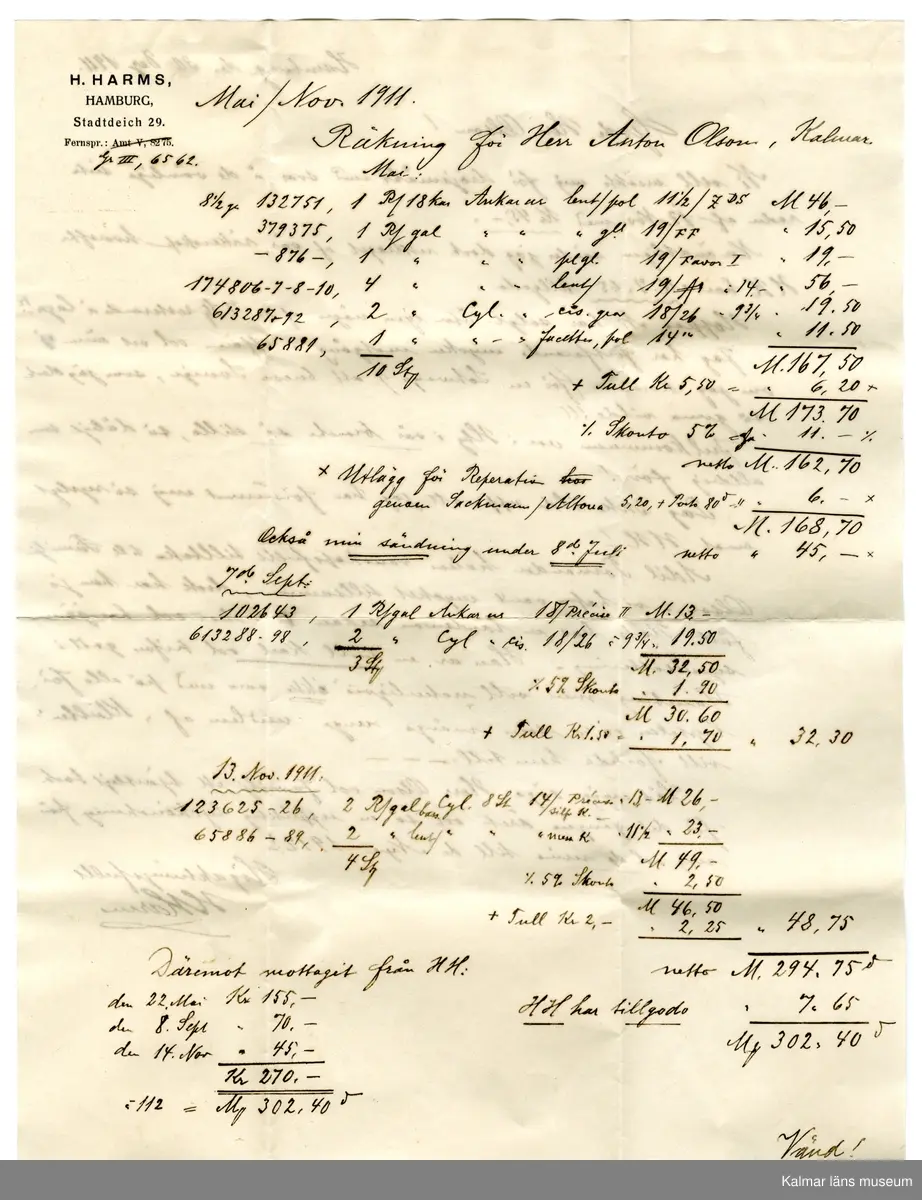 H. HARMS,
HAMBURG,
Stadtdeich 29.
Fernspr.: Amt V, 8275.
Gr III, 6562.
Mai/Nov. 1911.
Räkning för Herr Anton Olsson, Kalmar.
Mai:
8 1/2 gr 132751, 1 R/ 18 kar Ankar ur lent/pol 11 1/2/ Z DS M 46,-
379375, 1 R/gal " " " gll 19/FF " 15,50
-876-, 1 " " " plgl. 19/Favor I " 19,-
174806-7-8-10, 4 " " " lent/ 19/ " 14.- " 56,-
613287-92, 2 " Cyl. " cis. grav 18/26 " 9 3/4 " 19.50
65881, 1 " " - " facettes, pol 14''' " 11.50
10 St/ M. 167,50
+ Tull Kr 5,50 = " 6,20 +
M 173.70
% Skonto 5% " 11.- %
netto M. 162,70
+ Utlägg för Reperation
genom Sackmann/Altona 5,20, + Porto 80 " 6.- x
M. 168,70
Också min sändning under 8 de Juli netto " 45,- x
7 de Sept:
102643, 1 R/gal Ankar ur 18/Précise II M. 13,-
613288-98, 2 " Cyl " cis. 18/26 = 9 3/4 " 19.50
3 St/ M. 32,50
% 5% Skonto " 1.90
M 30.60
+ Tull Kr 1.50 = " 1,70 " 32,30
13. Nov. 1911.
123625-26, 2 R/gal Cyl. 8 St 14/Précise = 13- M 26,-
65886-89, 2 " lent/ " " " K 11 1/2 " 23,-
4 St/ M. 49,-
% 5% Skonto " 2,50
M 46,50
+ Tull Kr 2,- " 2,25 " 48,75
Däremot mottagit från HH: netto M. 294.75
den 22. Mai Kr 155,- HH har tillgodo " 7.65
den 8. Sept " 70.-
den 14. Nov " 45,- M 302.40
Kr 270.-
= 112 = M 302,40
Vänd!
Kalmar läns museum